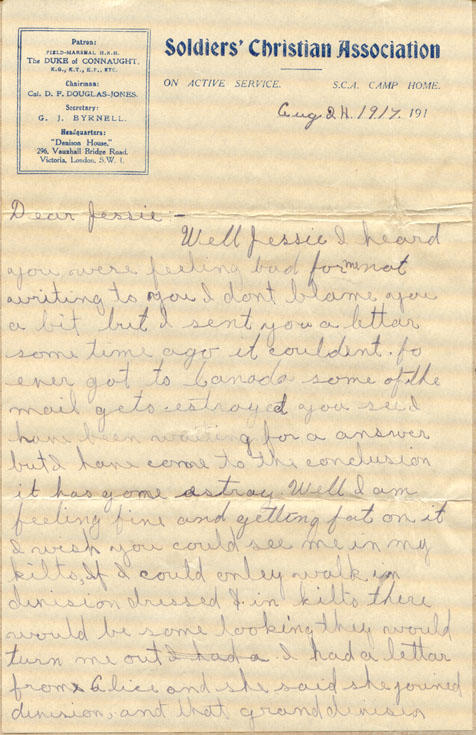 Patron:
FIELD-MARSHAL H.R.H.
The DUKE of CONNAUGHT,
K.G., K.T., K.P., ETC.
Chairman:
Col. D. F. DOUGLAS-JONES.
Secretary:
G. J. BYRNELL.
Headquarters:
"Denison House,"
296, Vauxhall Bridge Road,
Victoria, London, S.W. 1.
Soldiers' Christian Association
ON ACTIVE SERVICE. S.C.A. CAMP HOME.
Aug 24. 1917. 191
Dear Jessie:-
Well Jessie I heard
you were feeling bad for me not
writing to you I dont blame you
a bit but I sent you a lettar
some time ago it couldent
ever got to Canada some of the
mail gets estrayed you see I
have been waiting for a answer
but I have come to the conclusion
it has gone astray. Well I am
feeling fine and getting fat on it
I wish you could see me in my
kilts, If I could onley walk in
division dressed in kilts there
would be some looking they would
turn me out I had a. I had a lettar
from Alice and she said she joined
division, and that grand division